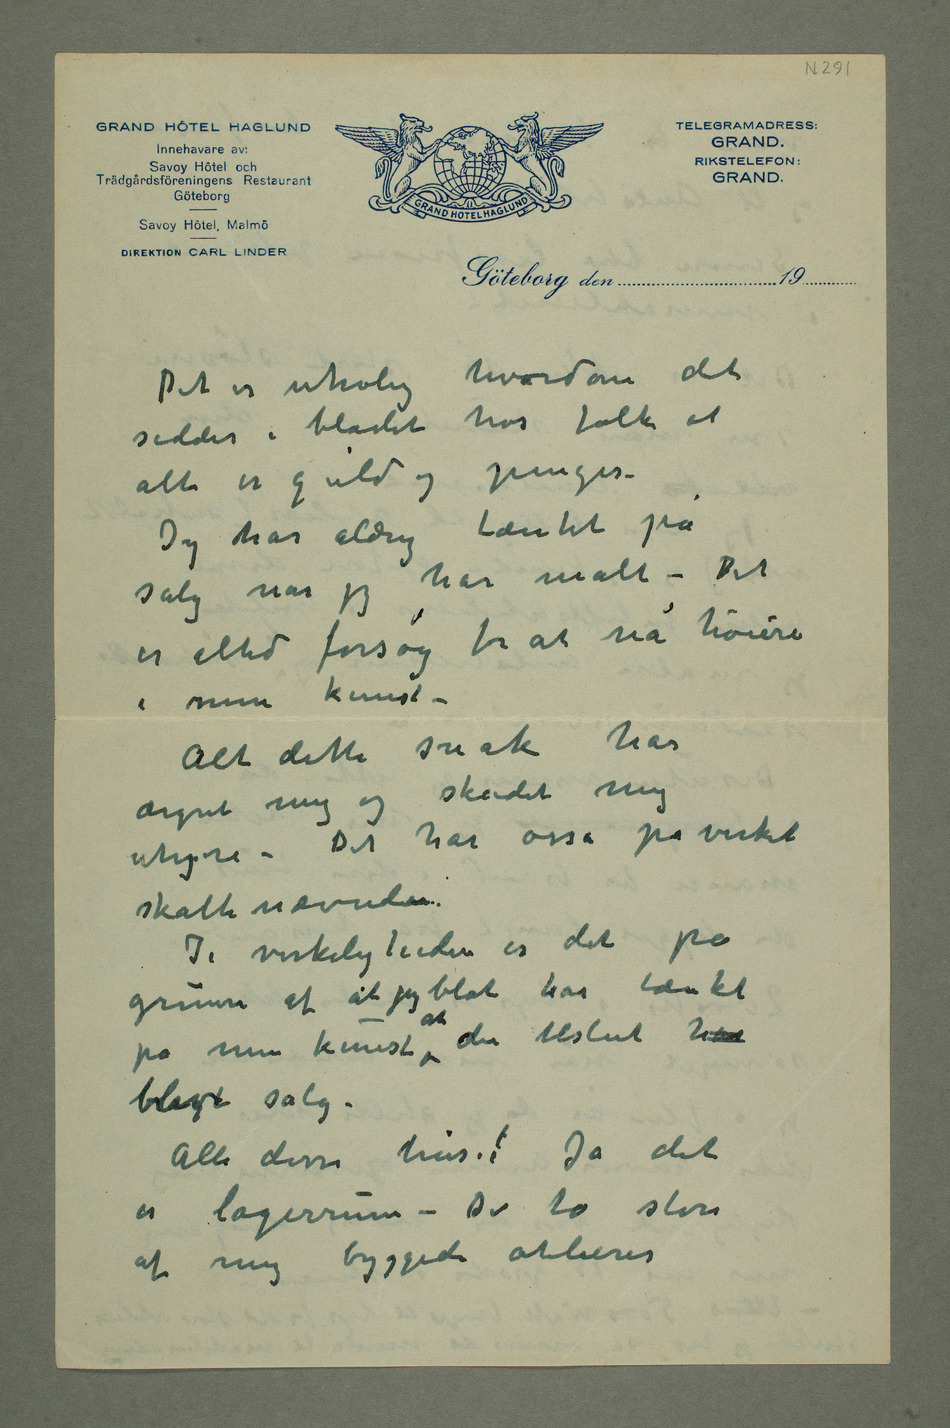 N 291
GRAND HÔTEL HAGLUND
Innehavare av:
Savoy Hôtel och
Trädgårdsföreningens Restaurant
Göteborg
Savoy Hôtel, Malmö
DIREKTION CARL LINDER
GRAND HOTEL HAGLUND
TELEGRAMADRESS:
GRAND.
RIKSTELEFON:
GRAND.
Göteborg den 19
Det er utrolig hvordan det
sidder i blodet hos folk at
alt er guld og penger.
Jeg har aldrig tænktet på
salg når jeg har malt – Det
er altid forsøg for at nå høiere
i min kunst –
Alt dette snak har
ærgret mig og skadet mig
uhyre – Det har osså påvirket
skattenævnden.
I virkeligheden er det på
grunn af at jeg blot har tænkt
på min kunst at der tilslut har
blevet salg.
Alle disse hus.! Ja det
er lagerrum – De to store
af mig byggede atelierer